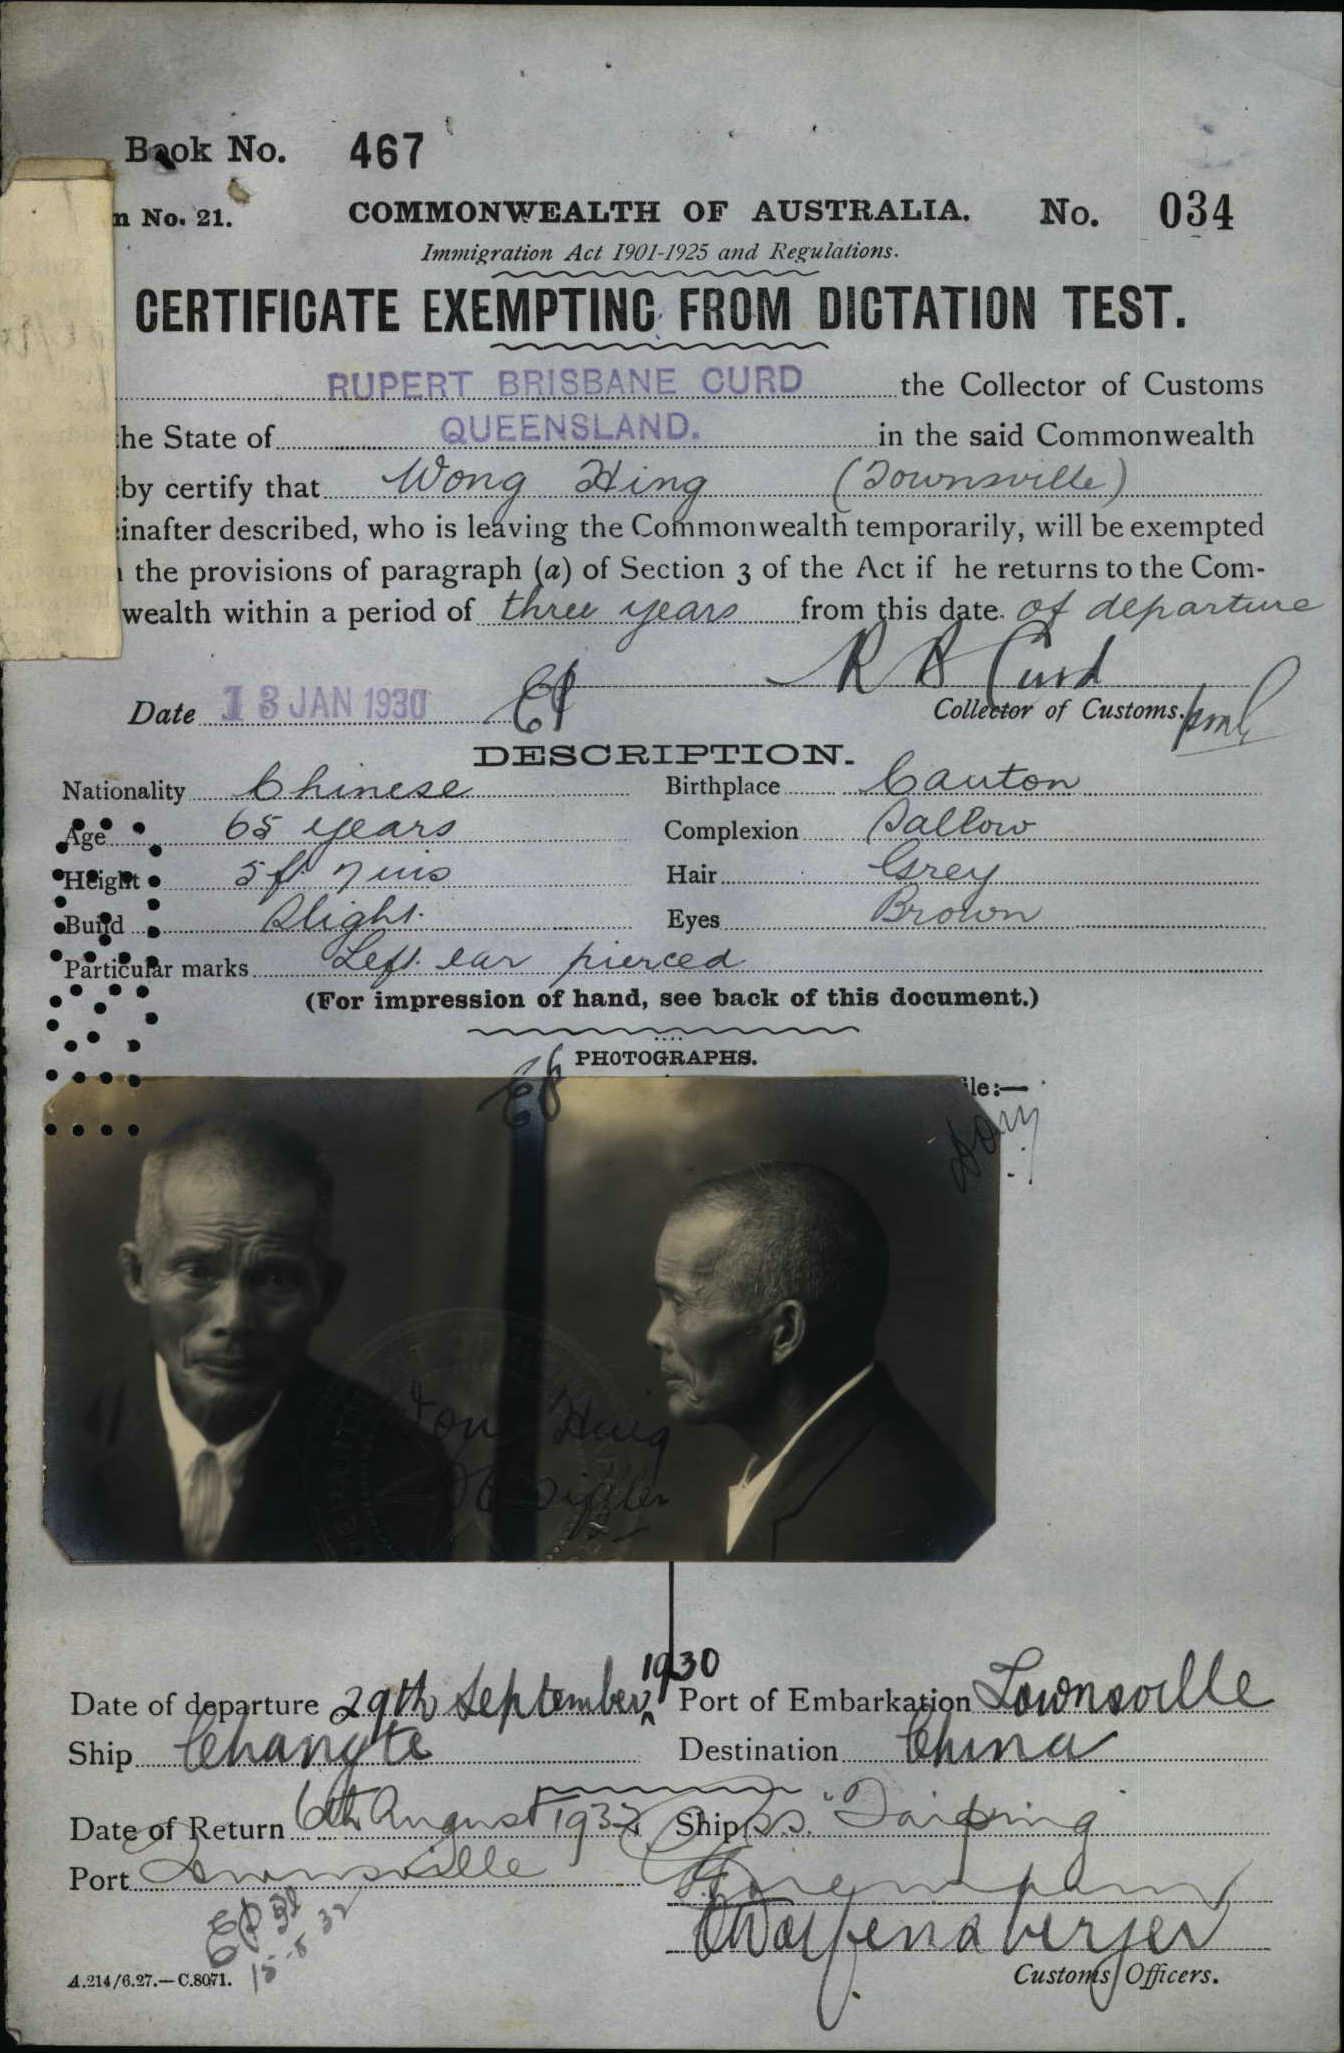 Book No. 467
n No. 21. COMMONWEALTH OF AUSTRALIA. No. 034
Immigration Act 1901-1925 and Regulations.
CERTIFICATE EXEMPTING FROM DICTATION TEST.
RUPERT BRISBANE CURD the Collector of Customs
he State of QUEENSLAND. in the said Commonwealth
by certify that Wong Hing (Townsville)
inafter described, who is leaving the Commonwealth temporarily, will be exempted
the provisions of paragraph (a) of Section 3 of the Act if he returns to the Com-
wealth within a period of three years from this date. of departure
R B Curd
Date 13 JAN 1930 Collector of Customs.
DESCRIPTION.
Nationality Chinese Birthplace Canton
Age 65 years Complexion Sallow
Height 5 ft 7 ins Hair Grey
Build Slight. Eyes Brown
Particular marks Left ear pierced
(For impression of hand, see back of this document.)
PHOTOGRAPHS.
ile:—
Hing
1930
Date of departure 29th September Port of Embarkation Townsville
Ship Changte Destination China
Date of Return 6th August 1932 Ship S.S. "Taiping"
Port Townsville
15-8-32
A.214/6.27.—C.8071. Customs Officers.